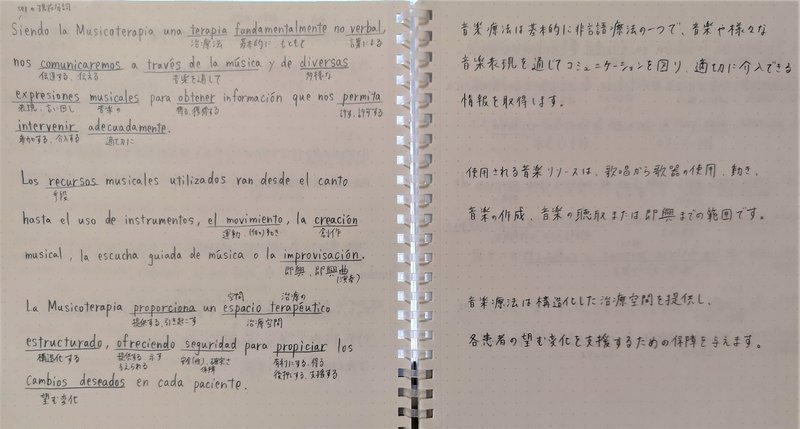 serの現在分詞
Siendo la Musicoterapia una terapia fundamentalmente no verbal,
治療法 基本的に、もともと 言葉による
nos comunicaremos a través de la música y de diversas
伝達する、伝える 音楽を通して 多様な
expresiones musicales para obtener información que nos permita
表現、言い回し 音楽の 得る、獲得する 許す、許可する
intervenir adecuadamente.
参加する、介入する 適切に
Los recursos musicales utilizados van desde el canto
手段
hasta el uso de instrumentos, el movimiento, la creación
運動、(体の)動き 創作
musical, la escucha guiada de música o la improvisación.
即興、即興曲
(演奏)
空間 治療の
La Musicoterapia proporciona un espacio terapéutico
提供する、引き起こす 治療空間
estructurado, ofreciendo seguridad para propiciar los
構造化する 提供する 示す 安全(性)、確実さ 有利にする、得る
与えられる 保障 後押しする、支援する
cambios deseados en cada paciente.
望む変化
音楽療法は基本的に非言語療法の一つで、音楽や様々な
音楽表現を通じてコミュニケーションを図り、適切に介入できる
情報を取得します。
使用される音楽リソースは、歌唱から歌器の使用、動き、
音楽の作成、音楽の聴取または即興までの範囲です。
音楽療法は構造化した治療空間を提供し、
各患者の望む変化を支援するための保障を与えます。